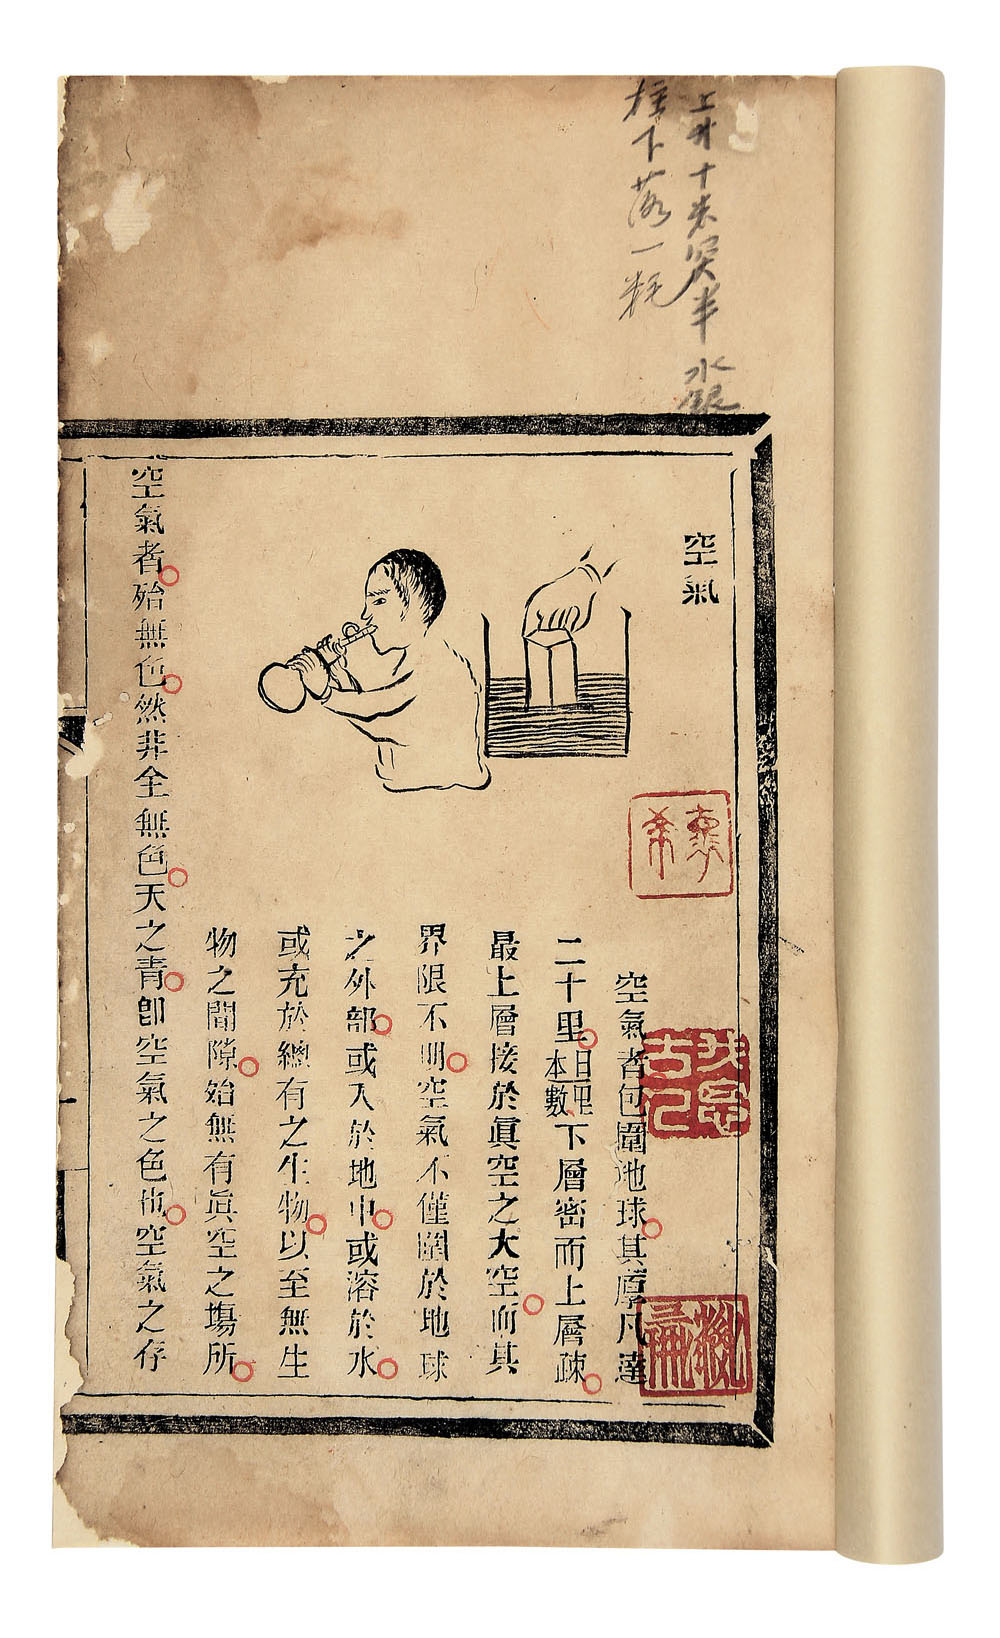 上升十米突半水銀
柱下落一粍
空氣
空氣者包圍地球其厚凡達
二十里日本里數下層密而上層疎
最上層接於眞空之大空而其
界限不明空氣不僅圍於地球
之外部或入於地中或溶於水
或充於總有之生物以至無生
物之間隙殆無有眞空之塲所
空氣者殆無色然非全無色天之青卽空氣之色也空氣之存